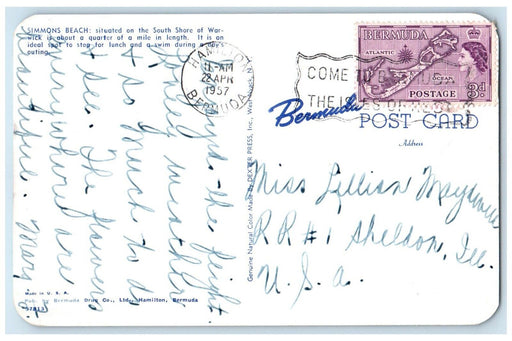 SIMMONS BEACH: situated on the South Shore of War-
wick is about a quarter of a mile in length. It is an
ideal spot to stop for lunch and a swim during a day's
outing.
HAMILTON
11-AM
28 APR
1957
BERMUDA
COME TO BERMUDA
THE ISLES OF
BERMUDA
ATLANTIC
OCEAN
POSTAGE
3d
Bermuda
POST CARD
Address
the flight
weather
& so much to do
& see. The flowers
everywhere are
beautiful. Mary
Genuine Natural Color Made by DEXTER PRESS, Inc., West Nyack, N.Y.
Miss Lillian
R R #1 Sheldon, Ill.
U. S. A.
Made in U. S. A.
Pub. by Bermuda Drug Co., Ltd., Hamilton, Bermuda